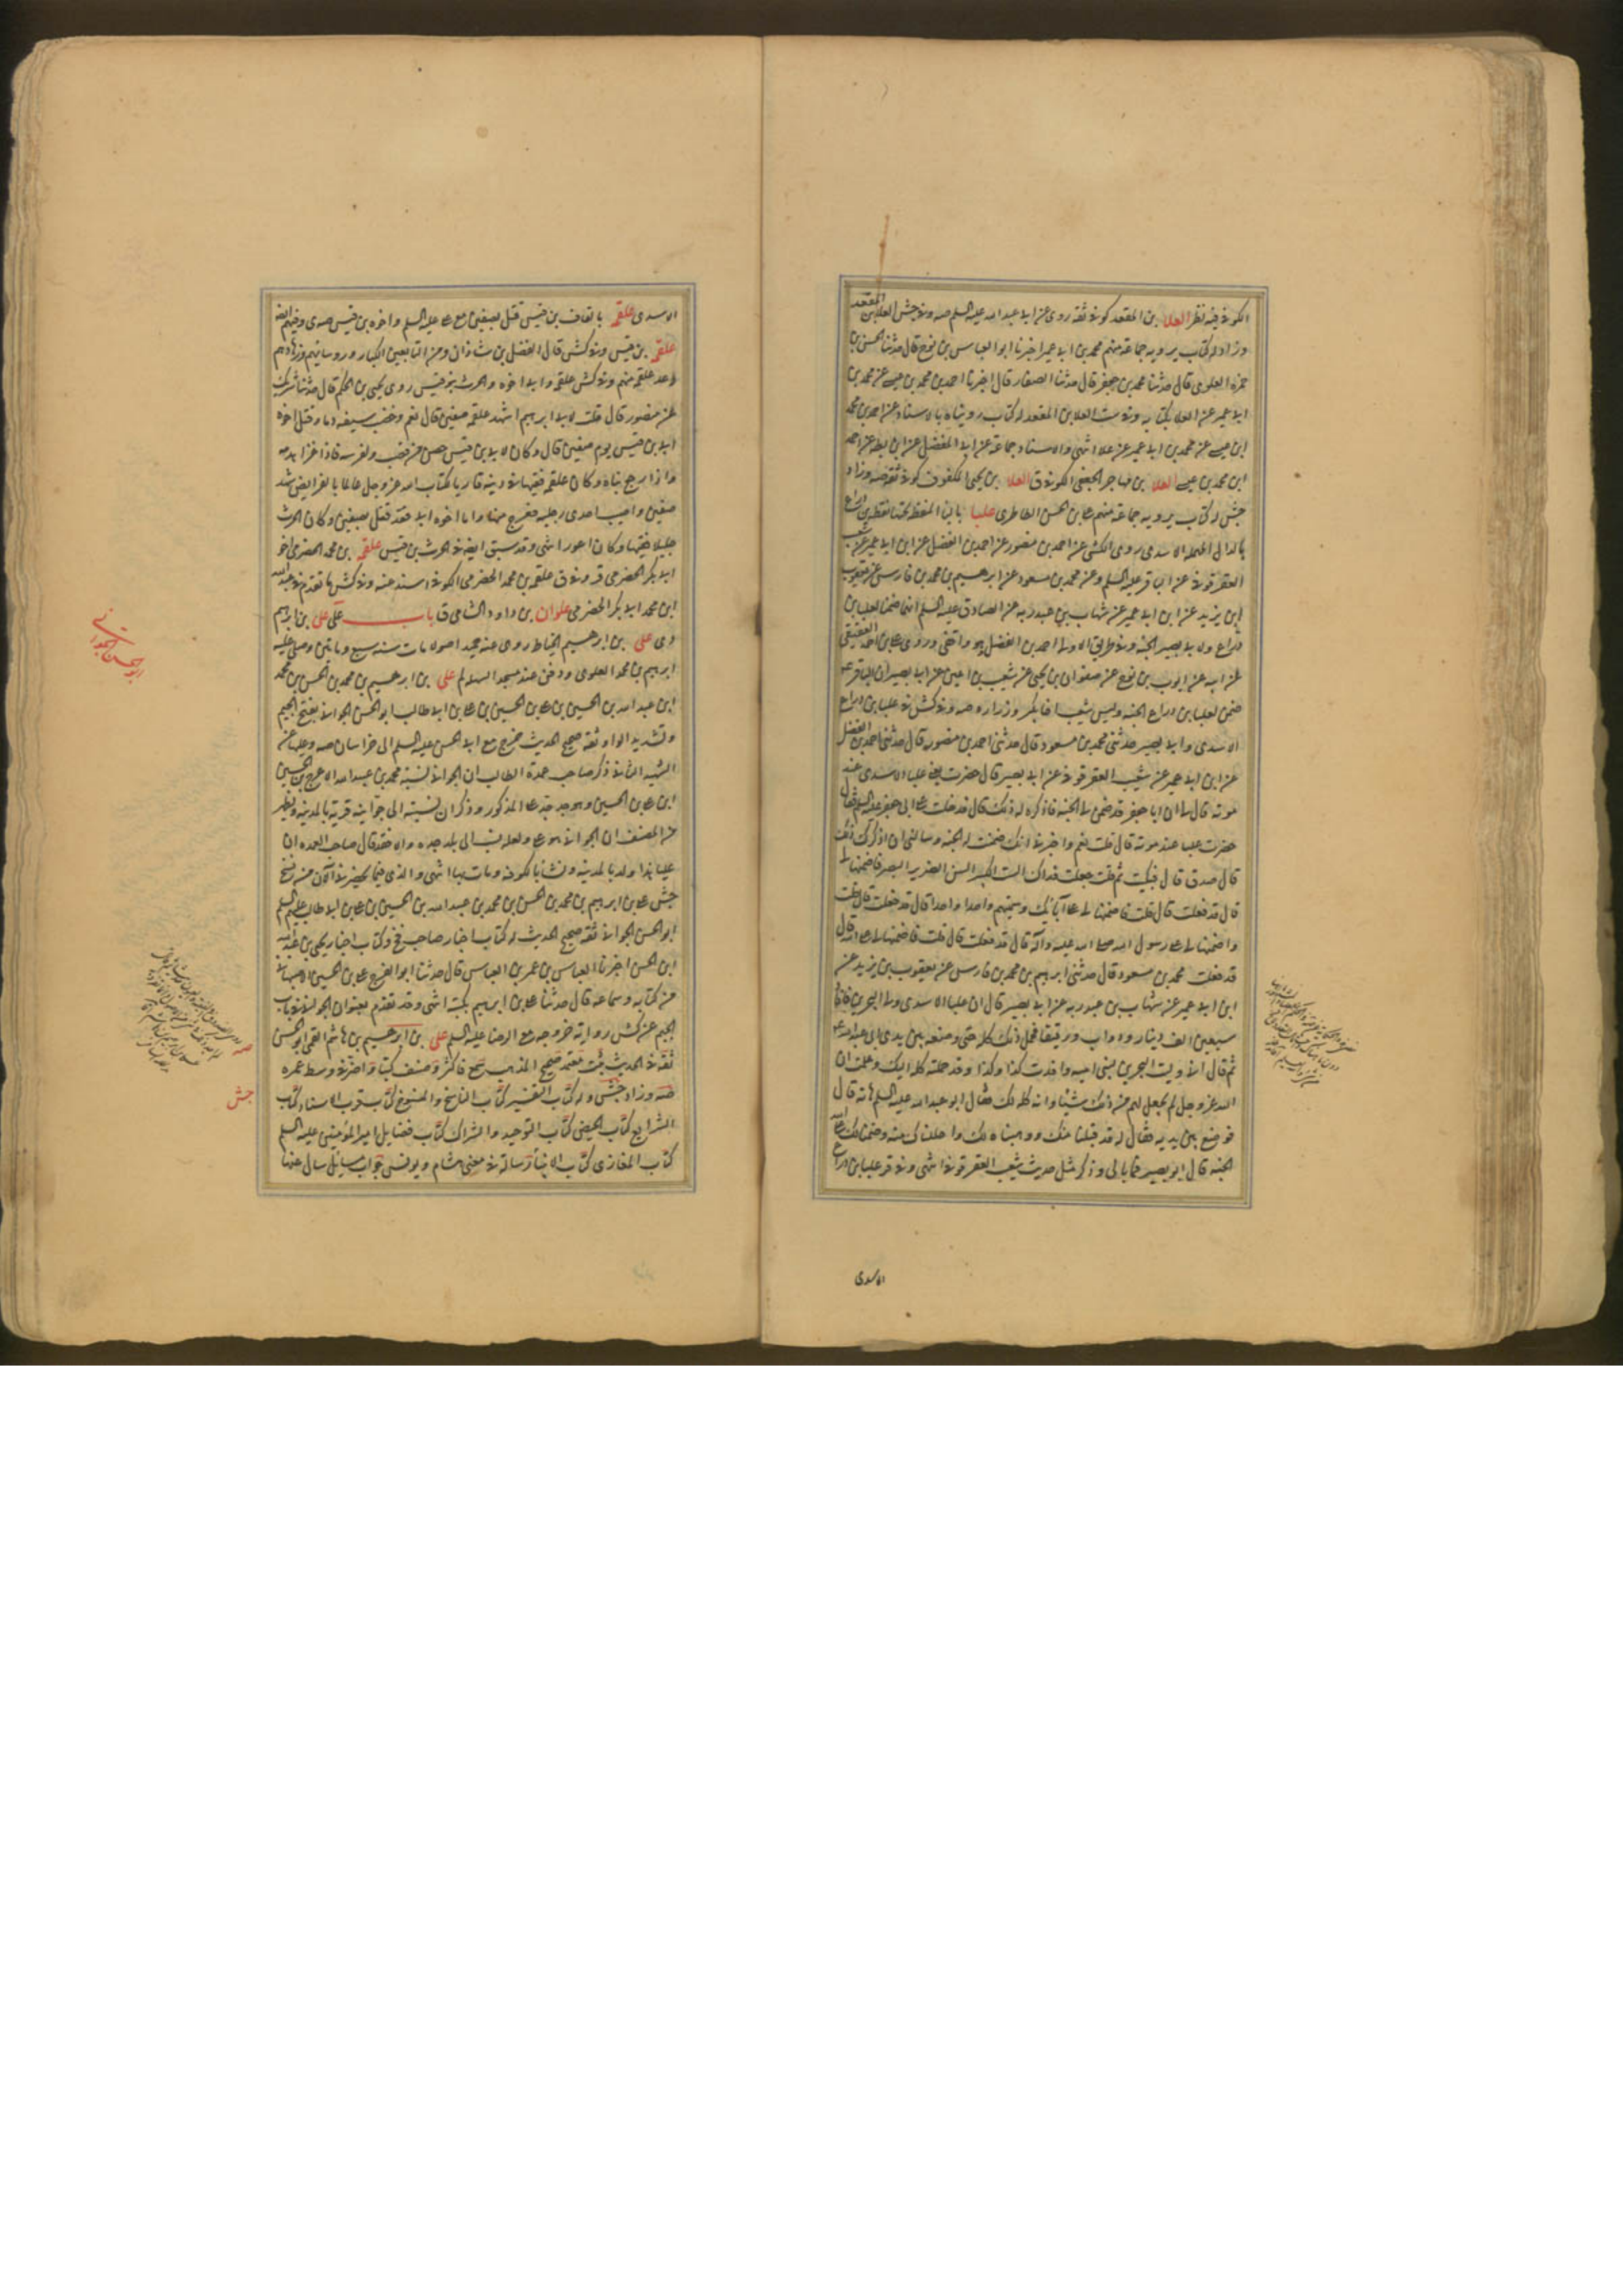 الكوفي فيه نظر العلا بن المقعد كوفي ثقة روى عن ابي عبد الله عليه السلم صه وفي جش العلا بن المقعد
وزاد له كتاب يرويه جماعة منهم محمد بن ابي عمير اخبرنا ابو العباس بن نوح قال حدثنا الحسن بن
حمزه العلوى قال حدثنا محمد بن جعفر قال حدثنا الصفار قال اخبرنا احمد بن محمد بن عيسى عن محمد بن
ابي عمير عن العلا بكتابه وفي ست العلا بن المقعد له كتاب رويناه بالاسناد عن احمد بن محمد
ابن عيسى عن محمد بن ابي عمير عن علا انتهى والاسناد جماعة عن ابي المفضل عن ابن بطه عن احمد
ابن محمد بن عيسى العلا بن مهاجر الجعفى الكوفي ق العلا بن يحيى المكفوف كوفي ثقة صه وزاد
جش له كتاب يرويه جماعة منهم علي بن الحسن الطاطرى علبا بالبا المنقطه تحتها نقطه بن دراع
بالدال المهمله الاسدى روى الكشى عن احمد بن منصور عن احمد بن الفضل عن ابن ابي عمير عن شعيب
العقرقوفي عن الباقر عليه السلم وعن محمد بن مسعود عن ابرهيم بن محمد بن فارس عن يعقوب
ابن يزيد عن ابن ابي عمير عن شهاب بن عبد ربه عن الصادق عليه السلم انهما ضمنا لعلبا بن
دراع ولابي بصير الجنه وفي طريق الاولى احمد بن الفضل وهو واقفى وروى علي بن احمد العقيقى
عن ابيه عن ايوب بن نوح عن صفوان بن يحيى عن شعيب بن اعين عن ابي بصير ان الباقر ع
ضمن لعلبا بن دراع الجنه وليس شعيب
الاسدى وابي بصير حدثنى محمد بن مسعود قال حدثنى احمد بن منصور قال حدثنى احمد بن الفضل
عن ابن ابي عمير عن شعيب العقرقوفي عن ابي بصير قال حضرت يعنى علبا الاسدى عند
موته فقال لي ان ابا جعفر قد ضمن لي الجنه فاذكره له ذلك قال فدخلت على ابي جعفر عليه السلم فقال
حضرت علبا عند موته قال قلت نعم واخبرنى انك ضمنت له الجنه وسالنى ان اذكرك ذلك
قال صدق قال فبكيت ثم قلت جعلت فداك الست الكبير السن الضرير البصر فاضمنها لي
قال قد فعلت قال قلت فاضمنها لي على آبائك وسميتهم واحدا واحدا قال قد فعلت قال قلت
واضمنها لي على رسول الله صلى الله عليه وآله قال قد فعلت قال قلت فاضمنها لي على الله قال
قد فعلت محمد بن مسعود قال حدثنى ابرهيم بن محمد بن فارس عن يعقوب بن يزيد عن
ابن ابي عمير عن شهاب بن عبد ربه عن ابي بصير قال ان علبا الاسدى ولى البحرين فافاد
سبعين الف دينار ودواب ورقيقا فحمل ذلك كله حتى وضعه بين يدى ابي عبد الله ع
ثم قال انى وليت البحرين لبنى اميه وافدت كذا وكذا وقد حملته كله اليك وعلمت ان
الله عز وجل لم يجعل لهم من ذلك شيئا وانه كله لك فقال ابو عبد الله عليه السلم هاته قال
فوضع بين يديه فقال له قد قبلنا منك ووهبناه لك واحللناك منه وضمنا لك على الله
الجنه قال ابو بصير فما بالى وذكر مثل حديث شعيب العقرقوفي انتهى وفي قر علبا بن دراع
الاسدى
الاسدى علقمه بالقاف بن قيس قتل بصفين مع علي عليه السلم واخوه ابي بن قيس
علقمه بن قيس وفي كش قال الفضل بن شاذان ومن التابعين الكبار وروسائهم وزهادهم
وعد علقمه منهم وفي كش علقمه وابي اخوه والحرث بنو قيس روى يحيى بن الحكم قال حدثنا شريك
عن منصور قال قلت لابرهيم اشهد علقمه صفين قال نعم وخضب سيفه دما وقتل اخوه
ابي بن قيس يوم صفين قال وكان لابي بن قيس خص من قصب ولفرسه فاذا غزا هدمه
واذا رجع بناه وكان علقمه فقيها في دينه قاريا لكتاب الله عز وجل عالما بالفرايض شهد
صفين واصيب احدى رجليه فعرج منها واما اخوه ابي فقد قتل بصفين وكان الحرث
جليلا فقيها وكان اعور انتهى وقد سبق ايضا في الحرث بن قيس علقمه بن محمد الحضرمى اخو
ابي بكر الحضرمى قر وفي ق علقمه بن محمد الحضرمى الكوفي اسند عنه وفي كش ما تقدم في عبد الله
ابن محمد ابي بكر الحضرمى علوان بن داود الشامى ق باب علي علي بن ابرهيم
دى علي بن ابرهيم الخياط روى عنه حميد اصولا مات سنه سبع ومايتين وصلى عليه
ابرهيم بن محمد العلوى ودفن عند مسجد السهله لم علي بن ابرهيم بن محمد بن الحسن بن محمد
ابن عبد الله بن الحسين بن علي بن الحسين بن علي بن ابي طالب ابو الحسن الجوانى بفتح الجيم
وتشديد الواو ثقه صحيح الحديث خرج مع ابي الحسن عليه السلم الى خراسان صه وعليها عن
الشهيد الثانى ذكر صاحب عمدة الطالب ان الجوانى نسبته محمد بن عبيد الله الاعرج بن الحسين
ابن علي بن الحسين وهو جد جد علي المذكور وذكر ان نسبته الى جوانيه قرية بالمدينه ويظهر
من المصنف ان الجوانى هو علي ولعل نسب الى بلد جده والا فقد قال صاحب العمده ان
عليا هذا ولد بالمدينه ونشأ بالكوفه ومات بها انتهى والذى فيما يحضرنى الآن من نسخ
جش علي بن ابرهيم بن محمد بن الحسن بن محمد بن عبيد الله بن الحسين بن علي بن ابي طالب عليهم السلم
ابو الحسن الجوانى ثقه صحيح الحديث له كتاب اخبار صاحب فخ وكتاب اخبار يحيى بن عبد الله
ابن الحسن اخبرنا العباس بن عمر بن العباس قال حدثنا ابو الفرج علي بن الحسين الاصبهانى
من كتابه وسماعه قال حدثنا علي بن ابرهيم بكتبه انتهى وقد تقدم بعنوان الجوانى في باب
الجيم عن كش روايته خروجه مع الرضا عليه السلم علي بن ابرهيم بن هاشم القمى ابو الحسن
ثقه في الحديث ثبت معتمد صحيح المذهب سمع فاكثر وصنف كتبا واضر في وسط عمره
صه وزاد جش وله كتاب التفسير كتاب الناسخ والمنسوخ كتاب قرب الاسناد كتاب
الشرايع كتاب الحيض كتاب التوحيد والشرك كتاب فضايل امير المؤمنين عليه السلم
كتاب المغازى كتاب الانبيا رسالة في معنى هشام ويونس جواب مسايل سال عنها
ابو الحسن الجوانى
صه
جش